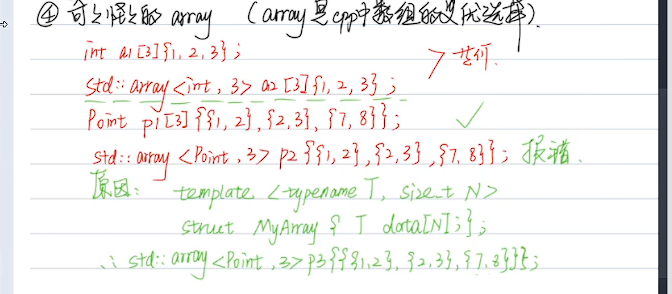 ④ 可怜的 array （array是cpp中数组的更优选择）.
int a1[3]{1,2,3};
std::array<int,3> a2[3]{1,2,3};
Point p1[3]{{1,2},{2,3},{7,8}};
std::array<Point,3> p2{{1,2},{2,3},{7,8}}; 报错.
原因: template <typename T, size_t N>
struct MyArray { T data[N];};
∴ std::array<Point,3> p3{{{1,2},{2,3},{7,8}}};